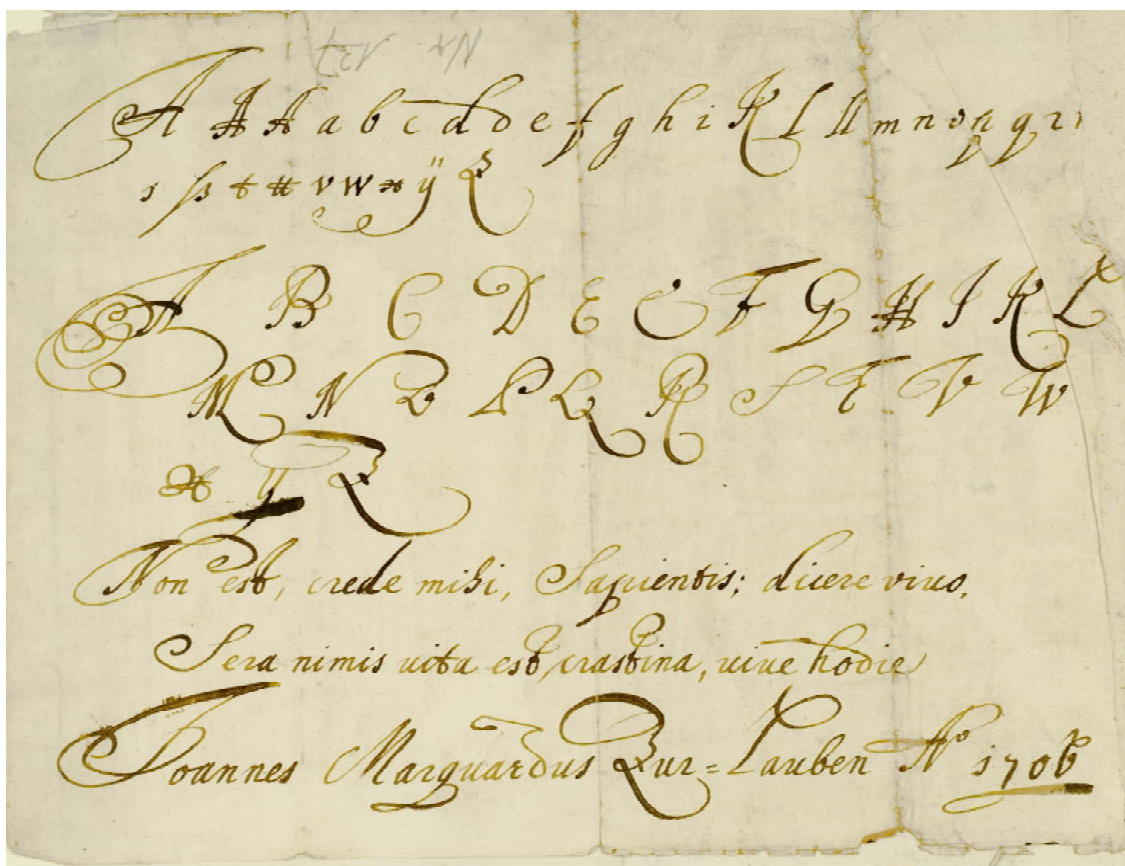 Nr 127
A A A a b c d d e f g h i K l ll m n o p q r
s ß t tt v w x ÿ Z
A B C D E E F G H I K L
M N O P Q R S T V W
X Y Z
Non est, crede mihi, Sapientis; dicere vivo,
Sera nimis uita est, crastina, uiue hodie
Joannes Marquardus Zur=Lauben Aº 1706